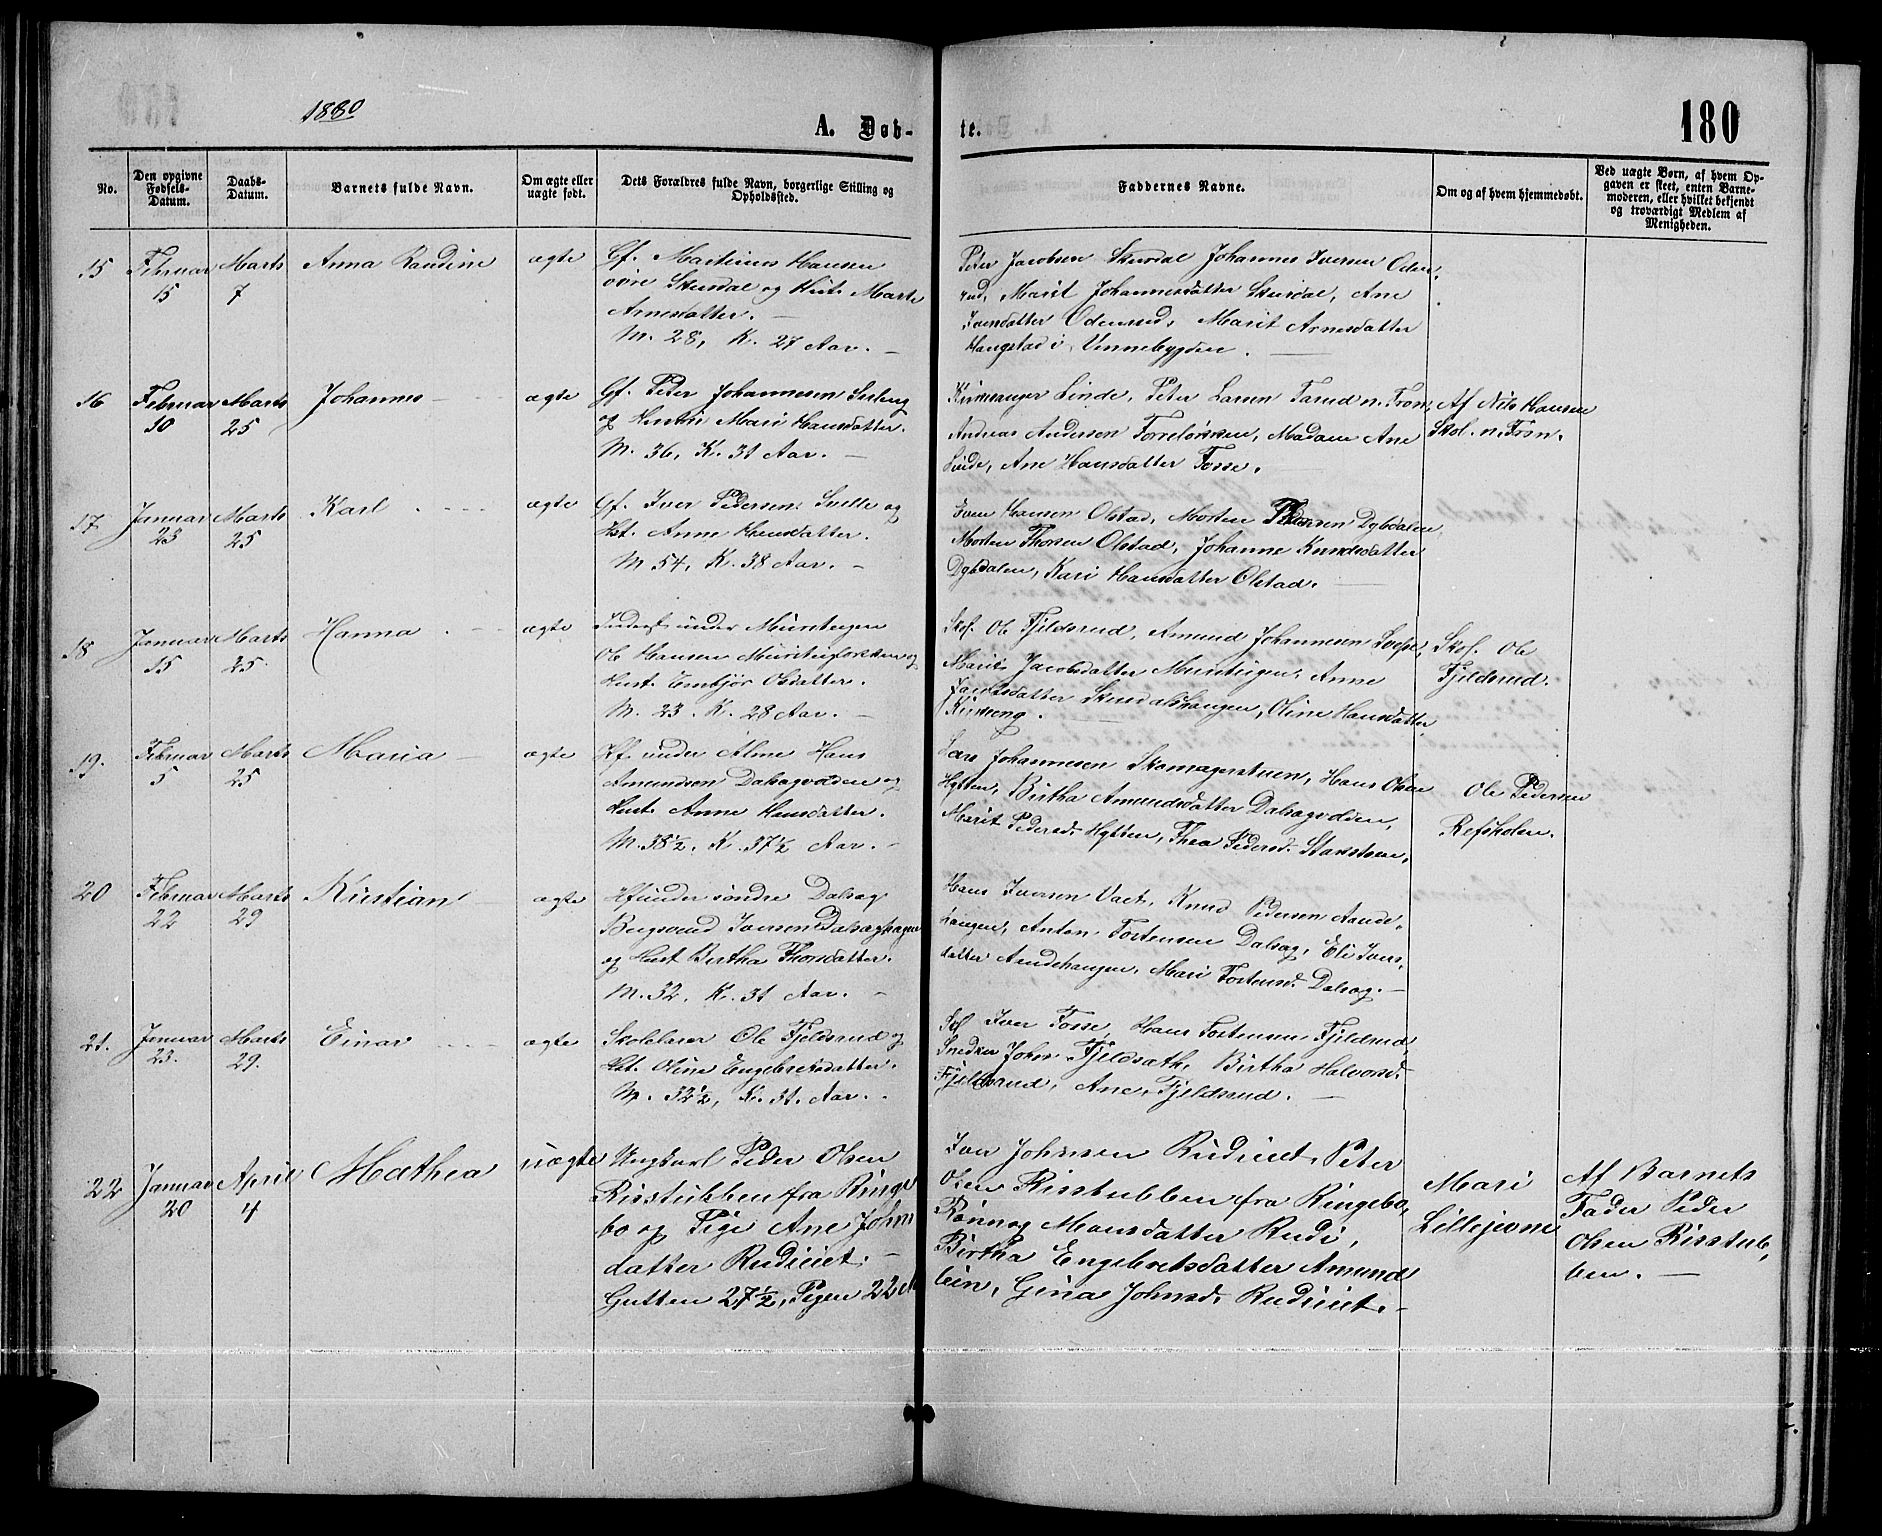 1880
A. Døb-
te.
180
No.
Den opgivne Fødsels-Datum.
Daabs-Datum.
Barnets fulde Navn.
Om ægte eller uægte født.
Dets Forældres fulde Navn, borgerlige Stilling og Opholdssted.
Faddernes Navne.
Om og af hvem hjemmedøbt.
Ved uægte Børn, af hvem Op-
gaven er skeet, enten Barne-
moderen, eller hvilket bekjendt
og troværdigt Medlem af
Menigheden.
15 Februar 15 Marts 7 Anna Randine ægte
Gf. Martinus Hansen
øvre Skurdal og Hust. Marte
Arnesdatter. —
M. 28, K. 27 Aar. —
Peter Jacobsen Skurdal Johannes Iversen Oden-
rud, Marit Johannesdatter Skurdal, Ane
Iversdatter Odenrud, Marit Arnesdatter
Haugstad i Vinnebygden. —
16 Februar 10 Marts 25 Johannes ægte
Gf. Peter Johannesen
og Hustru Mari Hansdatter.
M. 36, K. 31 Aar. —
Kirkesanger Linde, Peter Larsen Tarud n. Fron,
Andreas Andersen Madam Ane
Linde, Ane Hansdatter Fosse.
Af Nils Hansen
Skol. n. Fron.
17 Januar 23 Marts 25 Karl ægte
Gf. Iver Pedersen og
Hst. Anne Hansdatter.
M 54, K. 38 Aar. —
Even Hansen Olstad, Morten Dybdalen,
Morten Thorsen Olstad, Johanne Knudsdatter
Dybdalen, Kari Hansdatter Olstad. —
18 Januar 15 Marts 25 Hanna ægte
Inderst under
Ole Hansen og
Hust. Embjør Olsdatter.
M. 23. K. 28 Aar. —
Skol. Ole Fjeldsrud, Amund Johannesen
Marit Jacobsdatter Anne
Jacobsdatter Skurdalshaugen, Oline Hansdatter
Kirkeeng.
Skol. Ole
Fjeldsrud.
19. Februar 5 Marts 25 Maria ægte
Hf. under Alme Hans
Amundsen Dalsegvolden og
Hust. Anne Hansdatter.
M. 38½, K. 37½ Aar. —
Lars Johannesen Skomagerstuen, Hans Olsen
Hytten, Birtha Amundsdatter Dalsegvolden,
Marit Pedersd. Hytten, Thea Pedersd.
Ole Pedersen
Refsholen.
20 Februar 22 Marts 29 Kristian ægte
Hf under søndre Dalseg
Bergsvend Iversen Dalseghagen
og Hust Birtha Thorsdatter.
M. 32, K. 31 Aar. —
Hans Iversen Vaet, Knud Pedersen Aande-
haugen, Anton Tostensen Dalseg, Eli Ivers-
datter Aandehaugen, Mari Tostensd. Dalseg. —
21. Januar 23. Marts 29. Einar ægte
Skolelærer Ole Fjeldsrud og
Hst. Oline Engebretsdatter.
M. 32½, K. 31. Aar. .
Skl Iver Fosse, Hans Tostensen Fjeldsrud,
Snedker Johs. Birtha Halvorsd.
Fjeldsrud, Ane Fjeldsrud. —
22 Januar 20 April 4 Mathea uægte
Ungkarl Peder Olsen
Risstubben fra Ringe
bo og Pige Ane Johns
datter Rudieiet. —
Gutten 27½, Pigen 22 A
Iver Johnsen Rudieiet, Peter
Olsen Risstubben fra Ringebo,
Rønnog Mansdatter Rudi,
Birtha Engebretsdatter Amund
lien, Gina Johnsd. Rudieiet. —
Mari
Lillejevne
Af Barnets
Fader Peder
Olsen Risstub-
ben. —